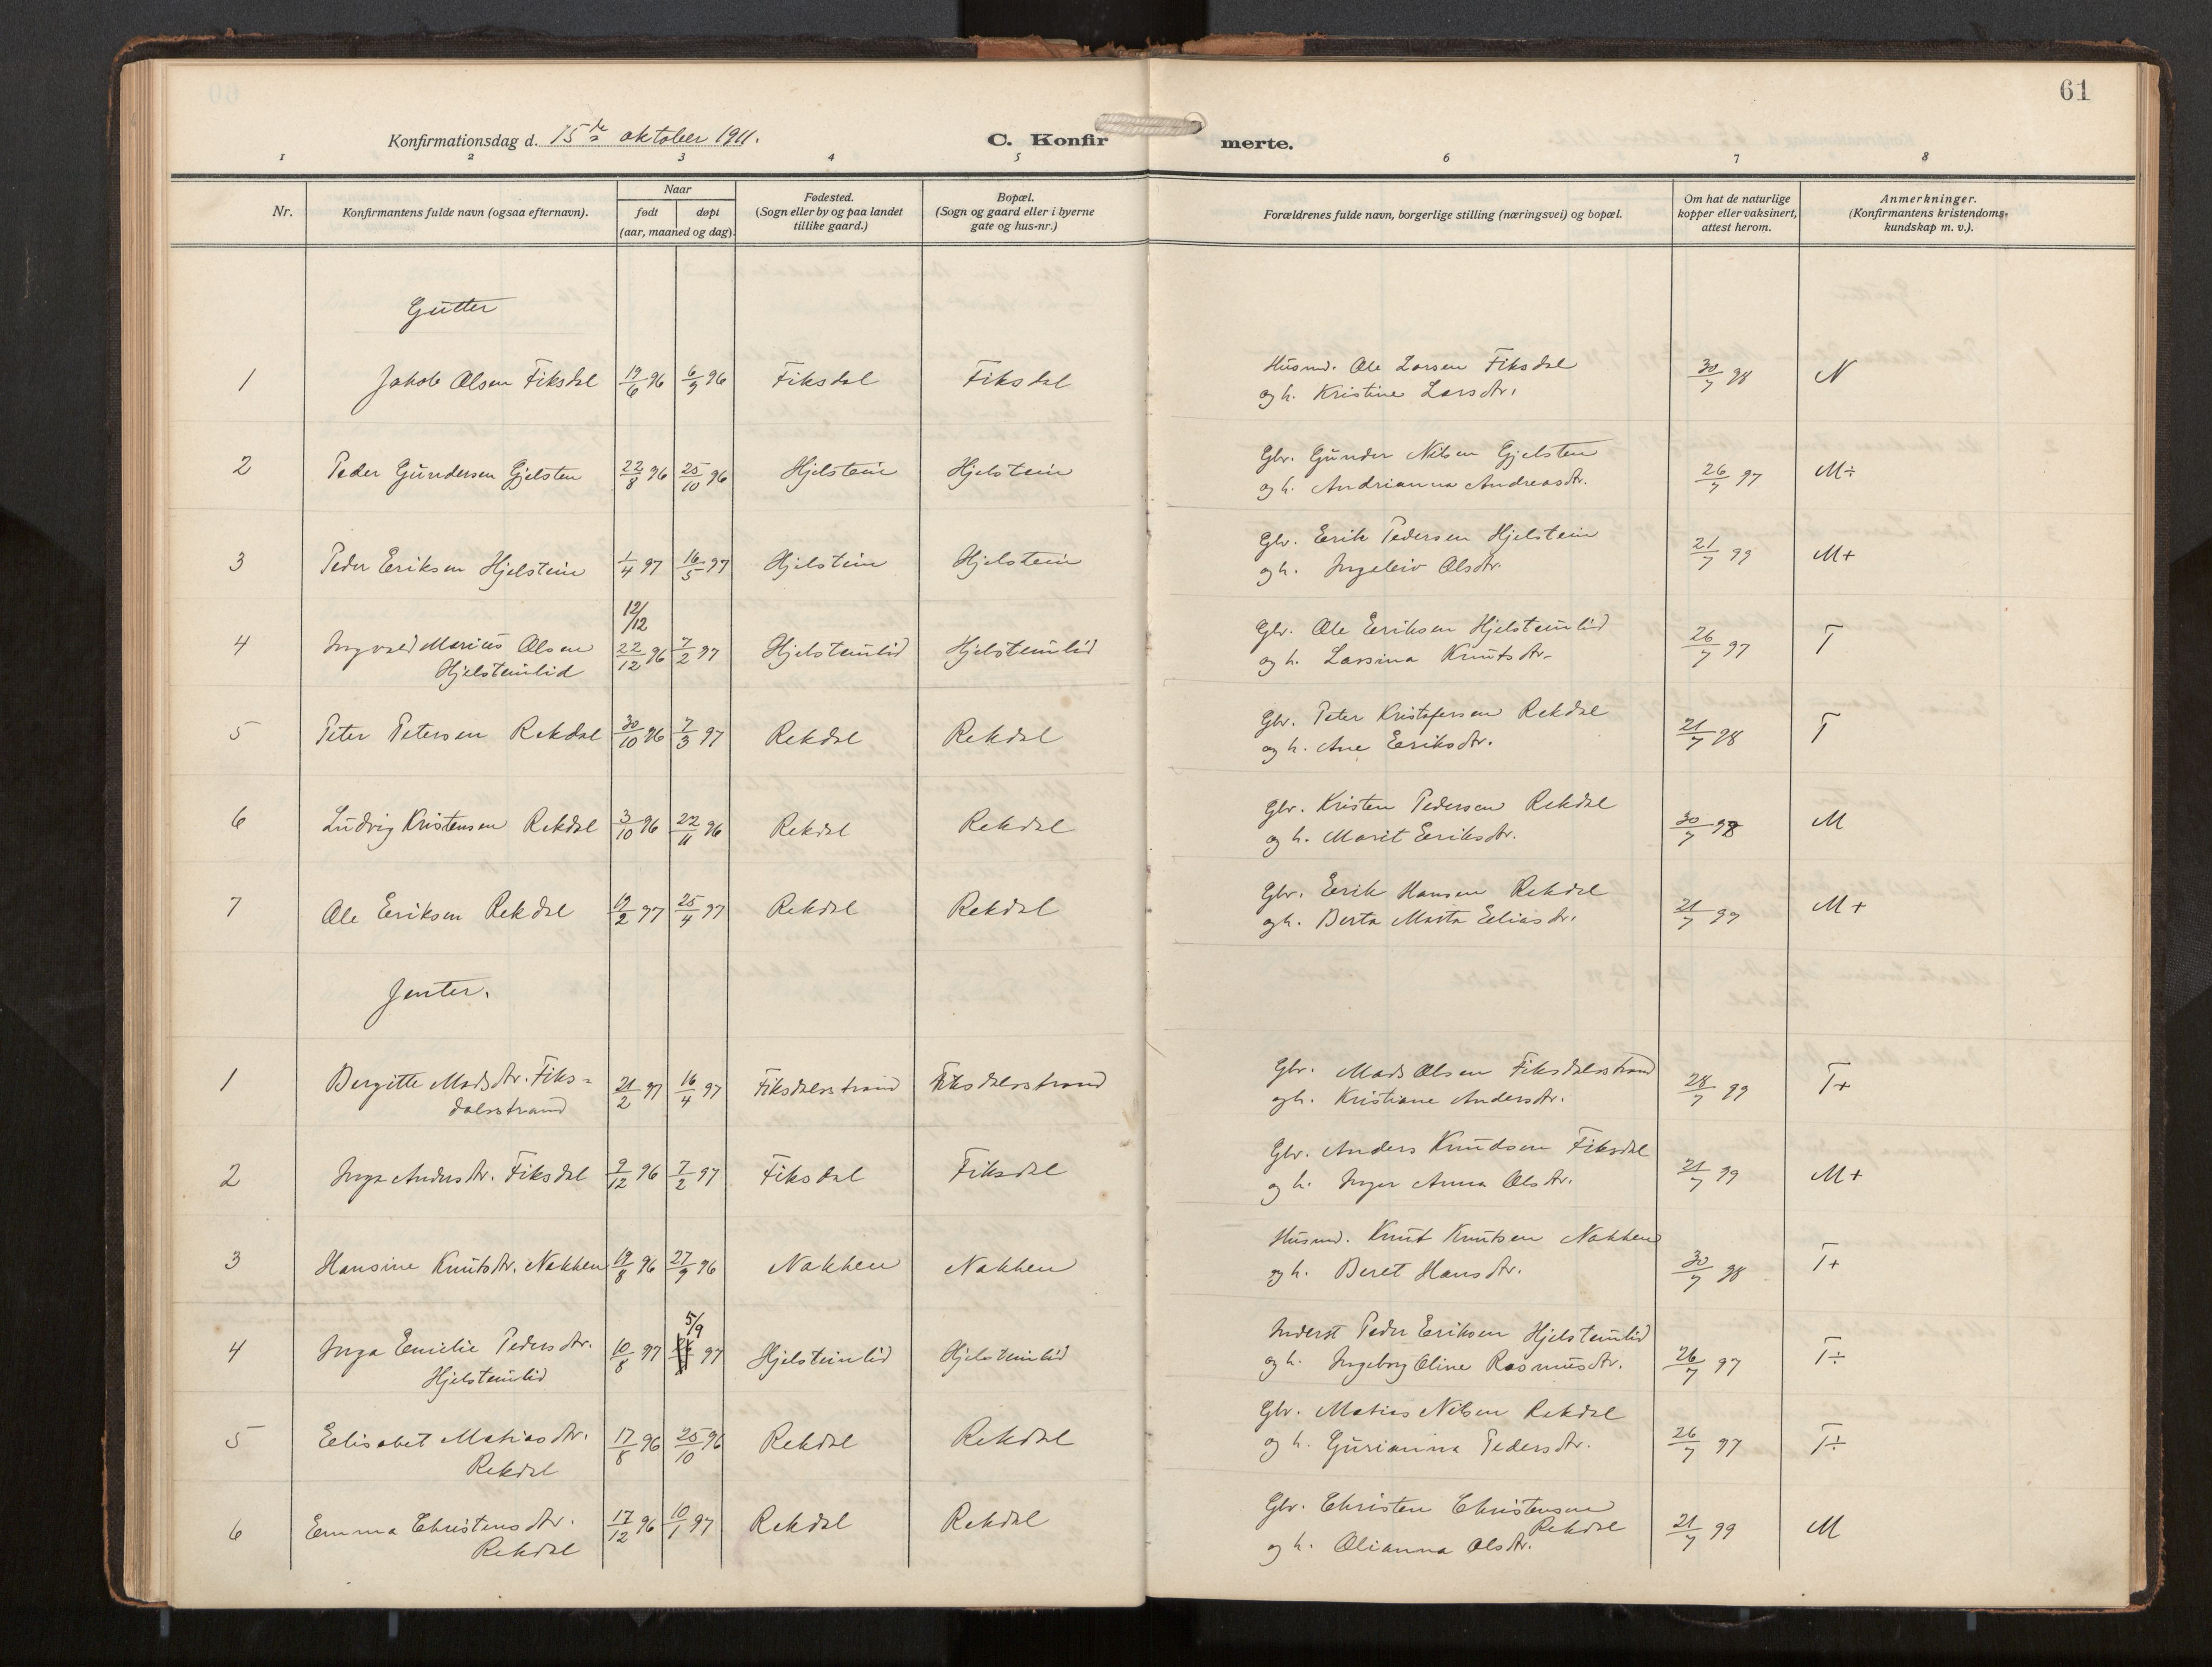 61
Konfirmationsdag d. 15de oktober 1911.
C. Konfirmerte.
1 2 3 4 5 6 7 8
Nr.
Konfirmantens fulde navn (ogsaa efternavn).
Naar
født døpt
(aar, maaned og dag).
Fødested.
(Sogn eller by og paa landet
tillike gaard.)
Bopæl.
(Sogn og gaard eller i byerne
gate og hus-nr.)
Forældrenes fulde navn, borgerlige stilling (næringsvei) og bopæl.
Om hat de naturlige
kopper eller vaksinert,
attest herom.
Anmerkninger.
(Konfirmantens kristendoms-
kundskap m. v.).
Gutter
1 Jakob Olsen Fiksdal 19/6 96 6/9 96 Fiksdal Fiksdal Husmd. Ole Larsen Fiksdal 30/7 98 N
og h. Kristine Larsdtr.
2 Peder Gundersen Gjelsten 22/8 96 25/10 96 Hjelstein Hjelstein Gbr. Gunder Nilsen Gjelsten 26/7 97 M÷
og h. Andrianna Andreasdtr.
3 Peder Eriksen Hjelstein 1/4 97 16/5 97 Hjelstein Hjelstein Gbr. Erik Pedersen Hjelstein 21/7 99 M+
og h. Ingeleiv Olsdtr.
12/12
4 Ingvald Marius Olsen 22/12 96 7/2 97 Hjelsteinlid Hjelsteinlid Gbr. Ole Eriksen Hjelsteinlid 26/7 97 T
Hjelsteinlid og h. Larsina Knutsdtr.
5 Peter Petersen Rekdal 30/10 96 7/3 97 Rekdal Rekdal Gbr. Peter Kristofersen Rekdal 21/7 98 T
og h. Ane Eriksdtr.
6 Ludvig Kristensen Rekdal 3/10 96 22/11 96 Rekdal Rekdal Gbr. Kristen Pedersen Rekdal 30/7 98 M
og h. Marit Eriksdtr.
7 Ole Eriksen Rekdal 19/2 97 25/4 97 Rekdal Rekdal Gbr. Erik Hansen Rekdal 21/7 99 M+
og h. Berta Marta Eliasdtr.
Jenter.
1 Bergitte Madsdtr. Fiks- 21/2 97 16/4 97 Fiksdalsstrand Fiksdalsstrand Gbr. Mads Olsen Fiksdalsstrand 28/7 99 T+
dalsstrand og h. Kristiane Andersdtr.
2 Inga Andersdtr. Fiksdal 9/12 96 7/2 97 Fiksdal Fiksdal Gbr. Anders Knudsen Fiksdal 21/7 99 M+
og h. Inger Anna Olsdtr.
3 Hansine Knutsdtr. Nakken 19/8 96 27/9 96 Nakken Nakken Husmd. Knut Knutsen Nakken 30/7 98 T+
og h. Beret Hansdtr.
5/9
4 Inga Emilie Pedersdtr. 10/8 97 97 Hjelsteinlid Hjelsteinlid Inderst Peder Eriksen Hjelsteinlid 26/7 97 T÷
Hjelsteinlid og h. Ingeborg Oline Rasmusdtr.
5 Elisabet Matiasdtr. 17/8 96 25/10 96 Rekdal Rekdal Gbr. Matias Nilsen Rekdal 26/7 97 T÷
Rekdal og h. Gurianna Pedersdtr.
6 Emma Christensdtr. 17/12 96 10/1 97 Rekdal Rekdal Gbr. Christen Christensen 21/7 99 M
Rekdal Rekdal
og h. Olianna Olsdtr.